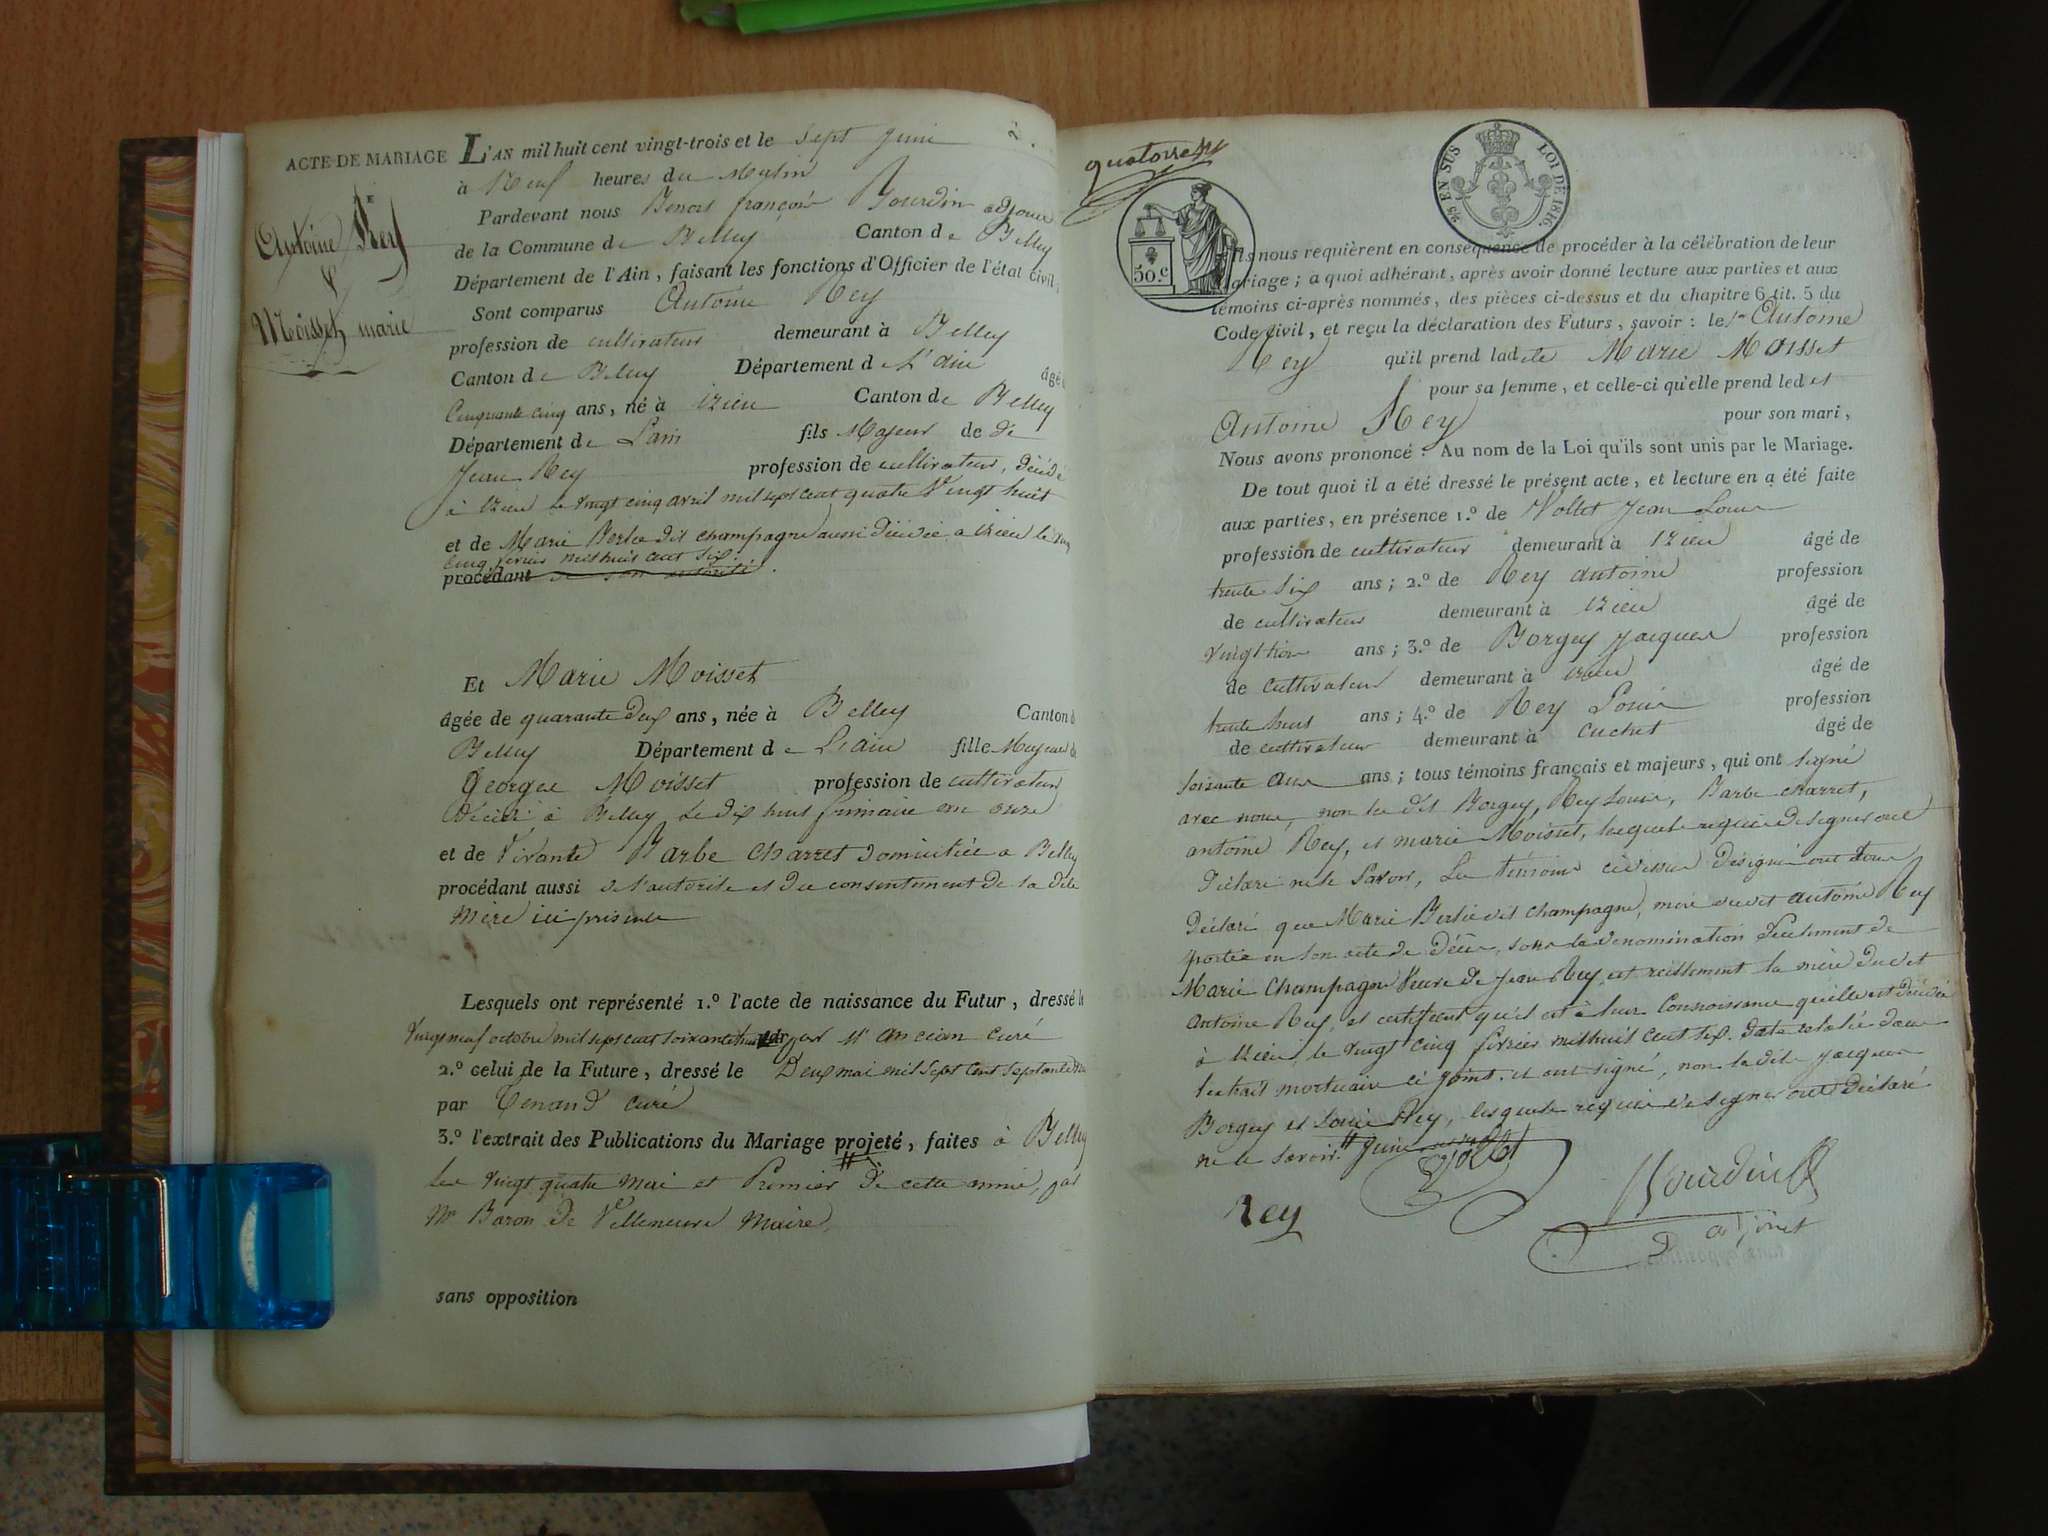 ACTE DE MARIAGE
Antoine Rey
&
Moisset marie
L'AN mil huit cent vingt-trois et le sept Juin
à Neuf heures du Matin
Pardevant nous Benoit françois Bourdin adjoint
de la Commune de Belley Canton de Belley
Département de l'Ain, faisant les fonctions d'Officier de l'état Civil,
Sont comparus Antoine Rey
profession de cultivateur demeurant à Belley
Canton de Belley Département de L'ain âgé
Cinquante cinq ans, né à izieu Canton de Belley
Département de Lain fils Majeur de
Jean Rey profession de cultivateur, décédé
à izieu le vingt cinq avril mil sept cent quatre Vingt huit
et de Marie Berlie dit champagne aussi décédée a izieu le vingt
cinq fevrier mil huit cent six.
procédant de son autorité
Et Marie Moisset
âgée de quarante deux ans, née à Belley Canton d
Belley Département de L'ain fille Majeure d
George Moisset profession de cultivateur
décédé à Belley le dix huit frimaire an onze
et de Vivante Barbe Charret domiciliée a Belley
procédant aussi de l'autorité et du consentement de sa dite
Mère ici présente
Lesquels ont représenté 1.º l'acte de naissance du Futur, dressé le
Vingt neuf octobre mil sept cent soixante par Mr ancian curé
2.º celui de la Future, dressé le Deux mai mil sept cent septante
par Tenand curé
3.º l'extrait des Publications du Mariage projeté, faites à Belley
les vingt quatre mai et Premier de cette année, par
Mr Baron de Villeneuve Maire
sans opposition
quatorze
25 EN SUS LOI DE 1816.
50.c
Ils nous requièrent en conséquence de procéder à la célébration de leur
mariage; a quoi adhérant, après avoir donné lecture aux parties et aux
témoins ci-après nommés, des pièces ci-dessus et du chapitre 6 tit. 5 du
Code Civil, et reçu la déclaration des Futurs, savoir: le Sr Antoine
Rey qu'il prend ladite Marie Moisset
pour sa femme, et celle-ci qu'elle prend ledit
Antoine Rey pour son mari,
Nous avons prononcé: Au nom de la Loi qu'ils sont unis par le Mariage.
De tout quoi il a été dressé le présent acte, et lecture en a été faite
aux parties, en présence 1.º de Vollet Jean Louis
profession de cultivateur demeurant à izieu âgé de
trente six ans; 2.º de Rey antoine profession
de cultivateur demeurant à izieu âgé de
vingt trois ans; 3.º de Borgey Jacques profession
de cultivateur demeurant à izieu âgé de
trente huit ans; 4.º de Rey Louis profession
de cultivateur demeurant à cuchet âgé de
soixante ans; tous témoins français et majeurs, qui ont signé
avec nous, non les dit Borgey, Rey Louis, Barbe charret,
antoine Rey, et marie Moisset, lesquels requis de signer ont
Déclaré ne le savoir, Les témoins ci dessus désignés ont tous
Déclaré que Marie Berlie dit champagne, mère dudit antoine Rey
portée en son acte de décès, sous la dénomination seulement de
Marie Champagne Veuve de Jean Rey, est reellement la mère dudit
antoine Rey, et certifient qu'il est à leur connoissance quelle est décédée
à izieu le vingt cinq fevrier mil huit cent six. date relatée dans
l'extrait mortuaire ci joint. et ont signé, non le dit Jacques
Borgey et Louis Rey, lesquels requis de signer ont déclaré
ne le savoir. # Juin
Vollet
Rey
Bourdin
adjoint